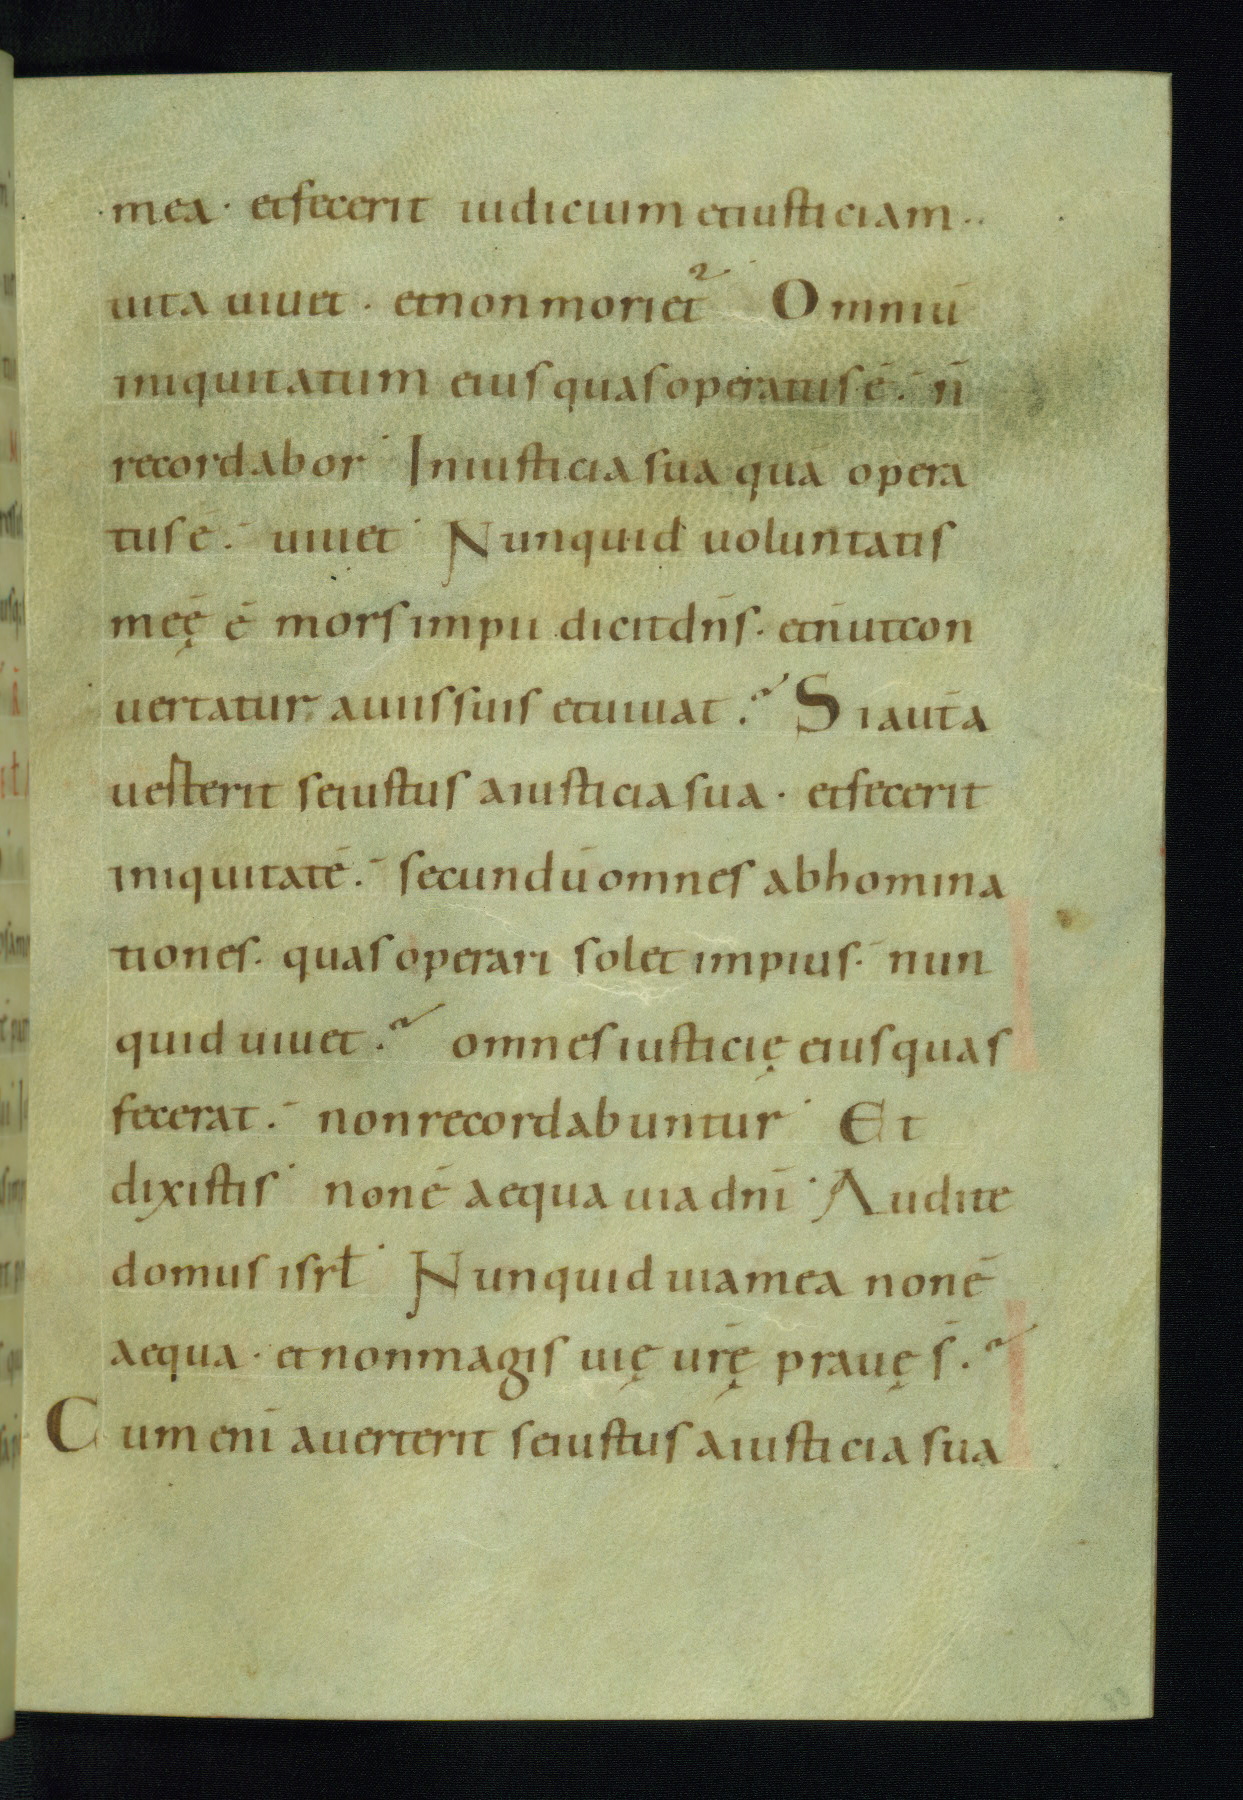 mea · et fecerit iudicium et iusticiam ··
uita uiuet · et non moriet᷑ Omniū
iniquitatum eius quas operatus ē · n̄
recordabor · In iusticia sua quā opera
tus ē · uiuet · Nunquid uoluntatis
meę̄ ē mors impii dicit dn̄s · et n̄ ut con
uertatur a uiis suis et uiuat .~ Si aut̄ a
uesterit se iustus a iusticia sua · et fecerit
iniquitatē · secundū omnes abhomina
tiones · quas operari solet impius · nun
quid uiuet .~ omnes iusticię eius quas
fecerat · non recordabuntur · Et
dixistis · non ē aequa uia dn̄i · Audite
domus isrł · Nunquid uia mea non ē
aequa · et non magis uię ur̄ę prauę s̄ .~
Cum enī auerterit se iustus a iusticia sua